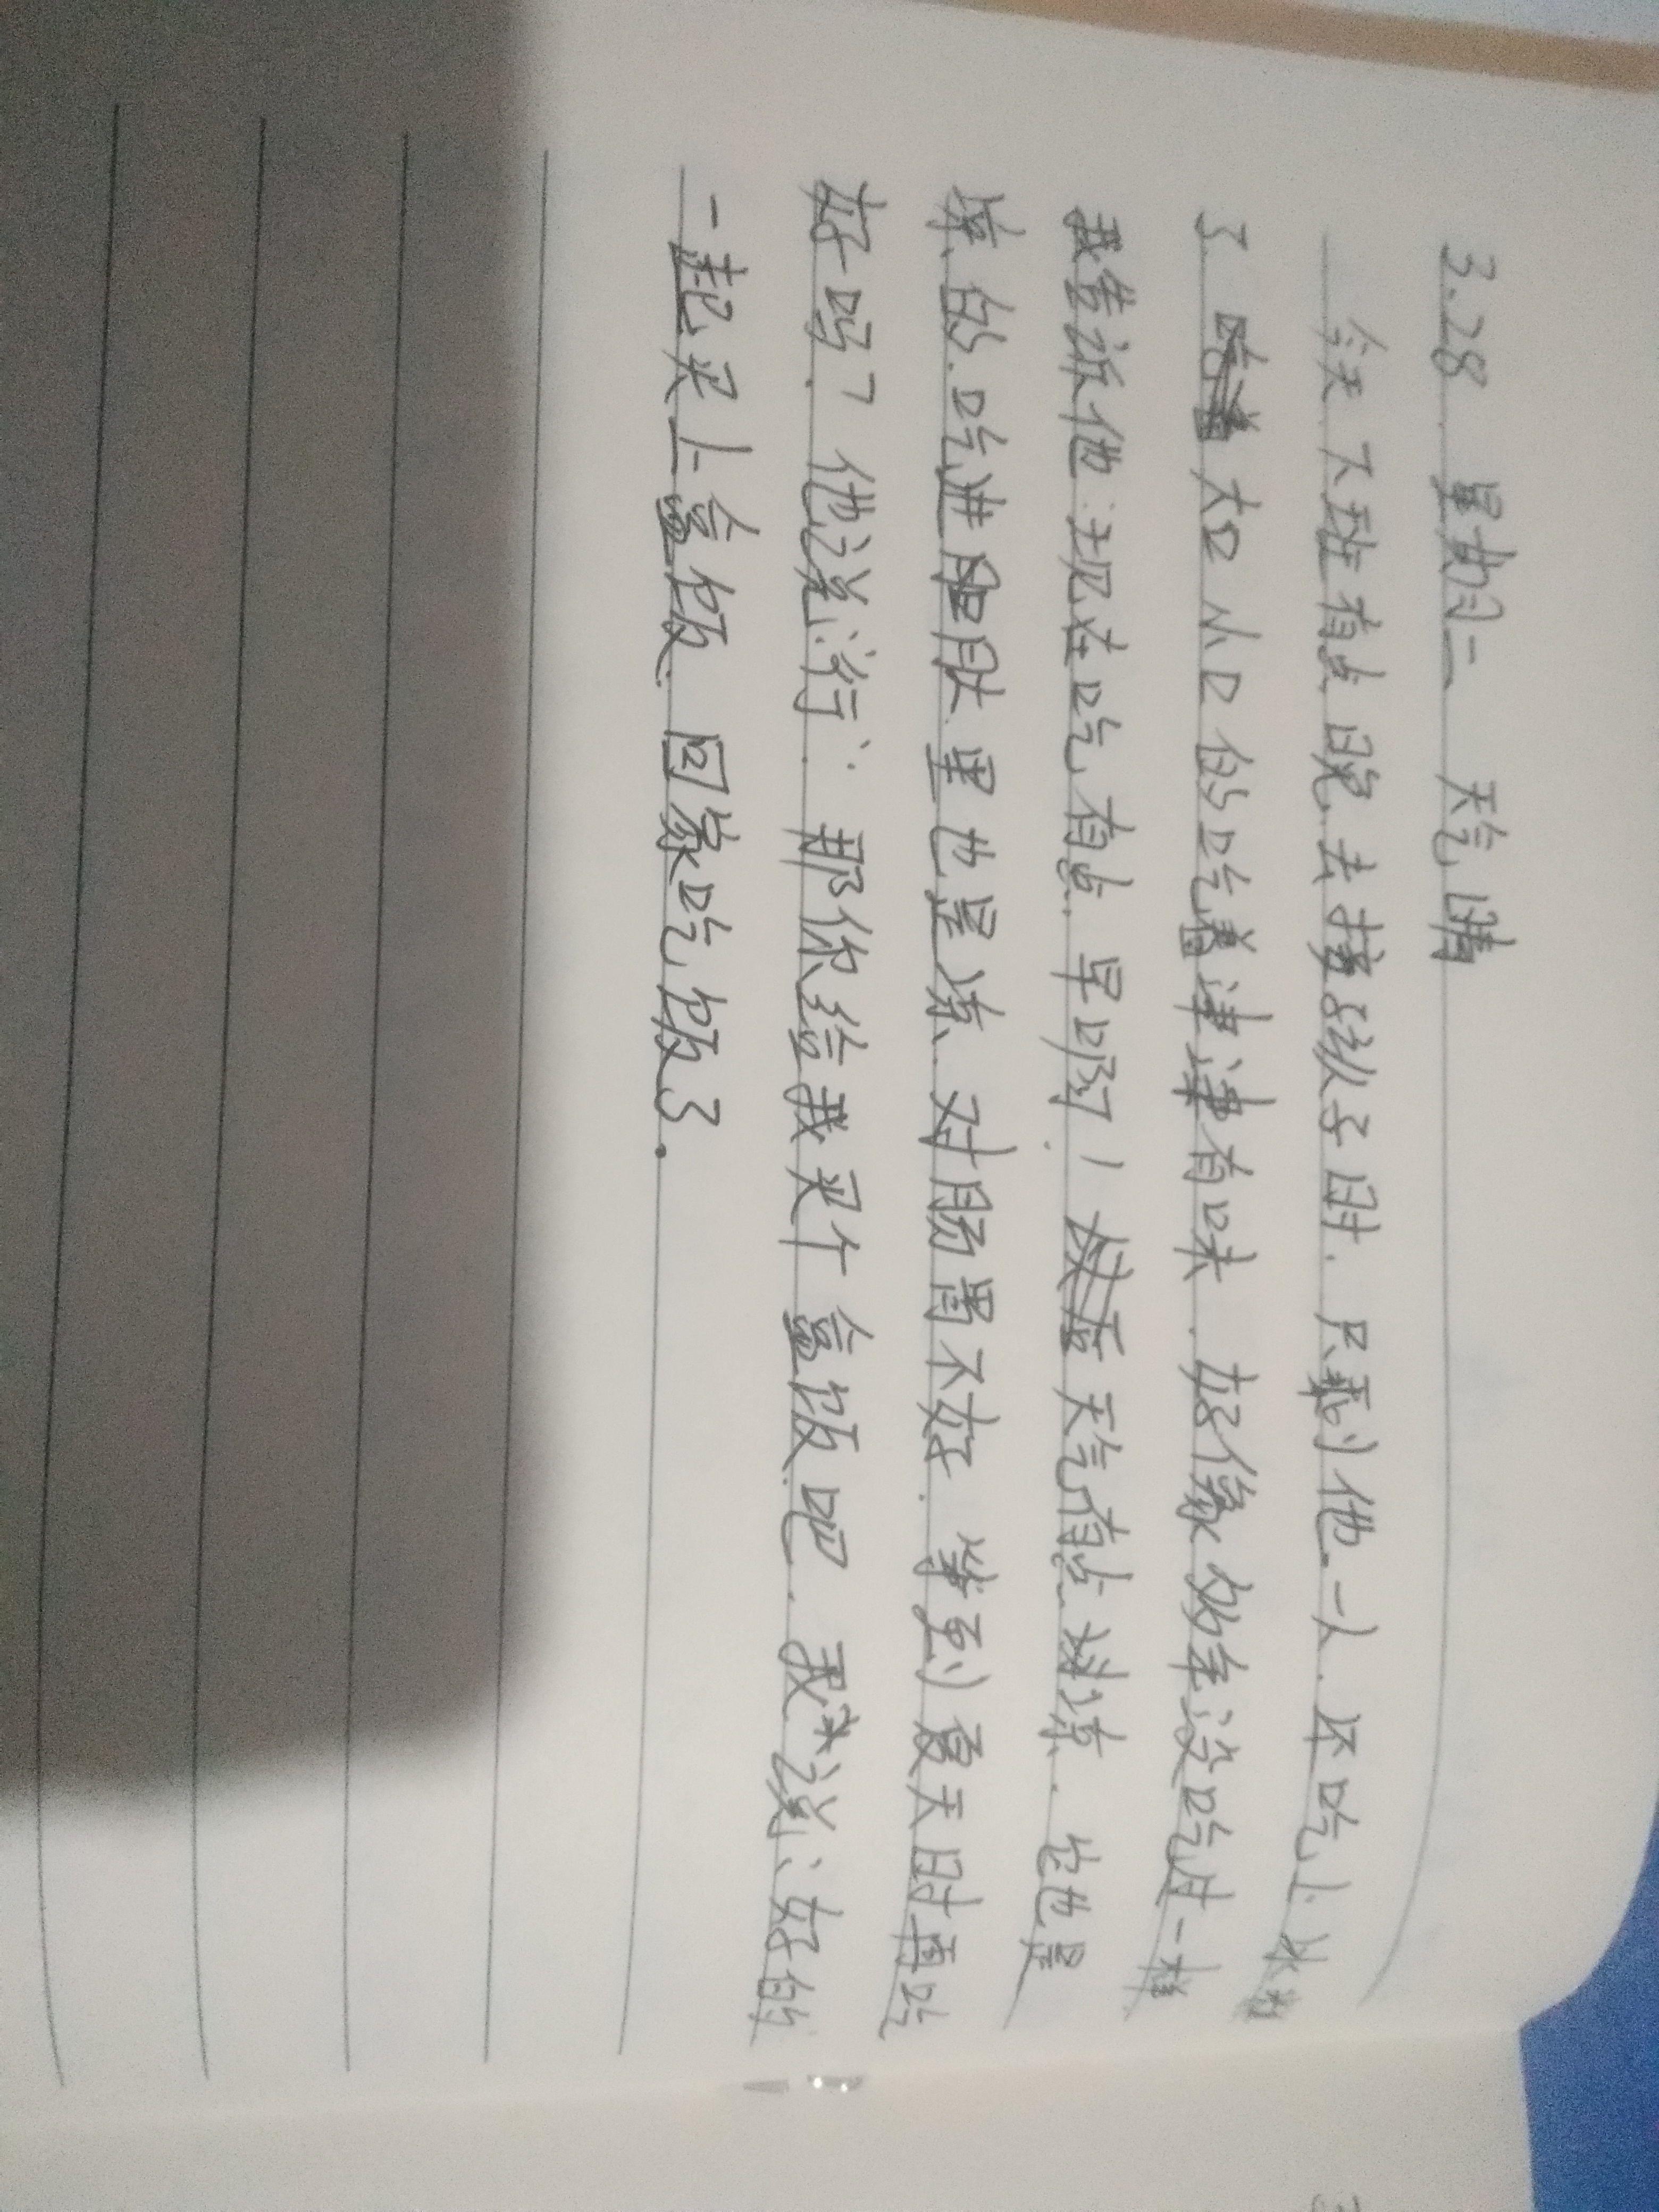 3.28 星期二 天气晴
今天下班有点晚去接孩子时.只剩他一人.还吃上冰
了 大口小口的吃着津津有味.好像好多年没吃过一样
我告诉他:现在吃有点早啊!天气有点凉.它也是
凉的.吃进肚里也是凉.对肠胃不好.等到夏天时再吃
好吗?他说:行.那你给我买个盒饭吧.我说:好的
一起买上盒饭.回家吃饭了.